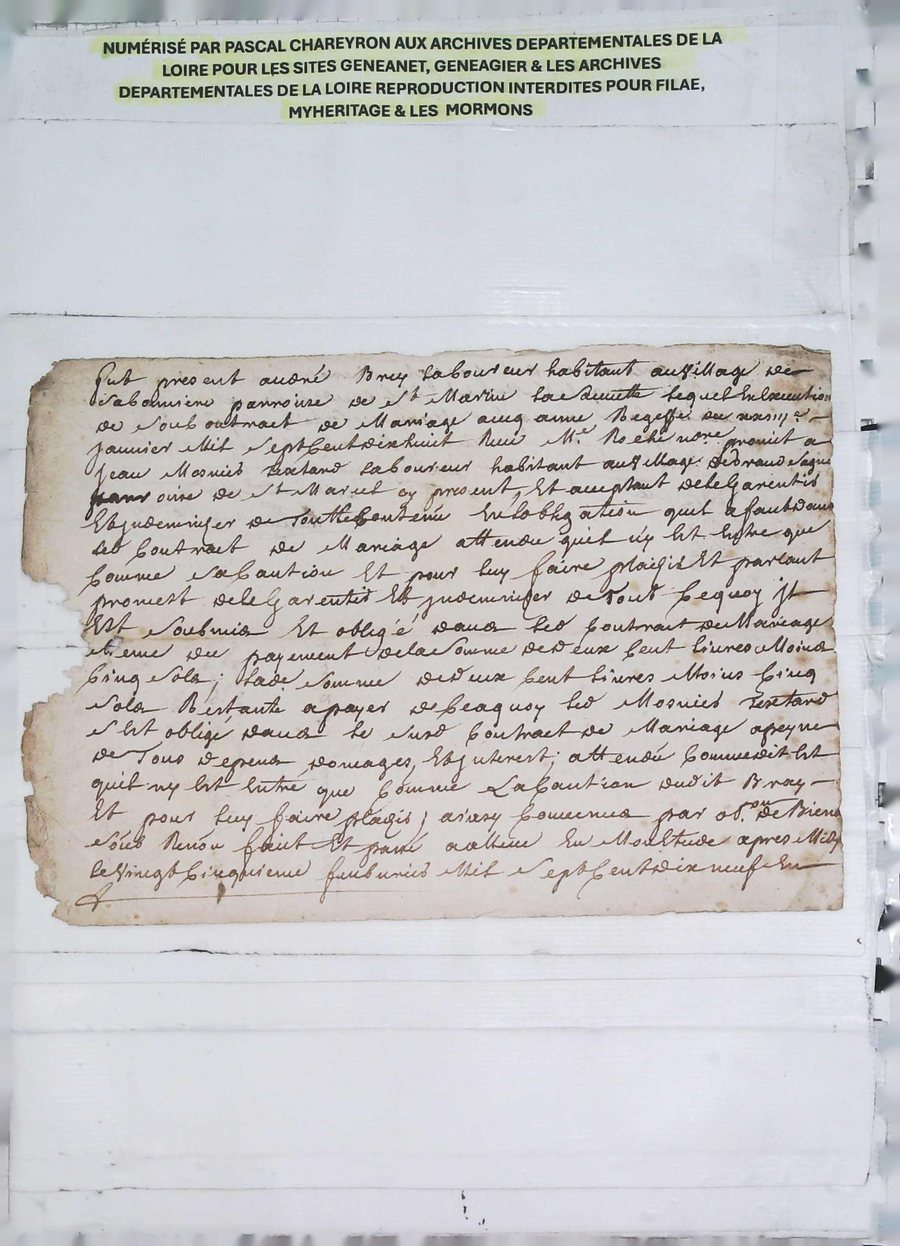 NUMÉRISÉ PAR PASCAL CHAREYRON AUX ARCHIVES DEPARTEMENTALES DE LA
LOIRE POUR LES SITES GENEANET, GENEAGIER & LES ARCHIVES
DEPARTEMENTALES DE LA LOIRE REPRODUCTION INTERDITES POUR FILAE,
MYHERITAGE & LES MORMONS
fut present andré Brey laboureur habitant au Village de
parroisse de St Martin la Sauveté lequel En Execution
de son Contract de Mariage avecq anne du
janvier Mil Sept Cent dix huit Receu Me Roche nore promit a
jean Mosnier laboureur habitant au Village
parroisse de St Marcel cy present, Et acceptant de le Garentir
Et jndemniser de Toutte Contenu En lobligation quil a fait dans
led Contract de Mariage attendu quil ny Est Entre que
Comme Sa Caution Et pour luy faire plaisir Et partant
promest de le Garentir Et jndemniser de Tout Cequoy jl
Est Soubmis Et obligé dans led Contract de Mariage
mesme du payement de la Somme de deux Cent livres Moins
Cinq Sols; lade Somme de deux Cent livres Moins Cinq
Sols Restante a payer de Ceaquoy led Mosnier
S Est obligé dans le Susd Contract de Mariage a peyne
de Tous depens domages, Et jnterest; attendu Comme dit Est
quil ny Est Entre que Comme La Caution dudit Bray
Et pour luy faire plaisir; ainsy Convenus par obon de Biens
Sous Renon faict Et passé En apres Midy
le Vingt Cinquieme feubvrier Mil Sept Cent dix neuf En